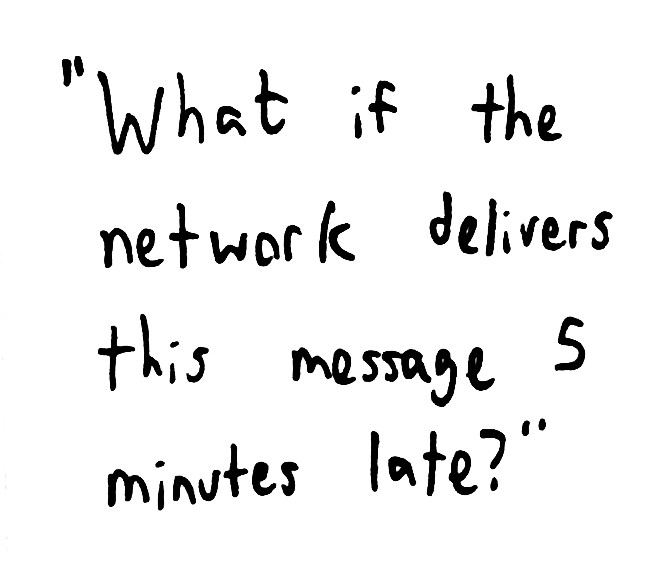 "What if the
network delivers
this message 5
minutes late?"